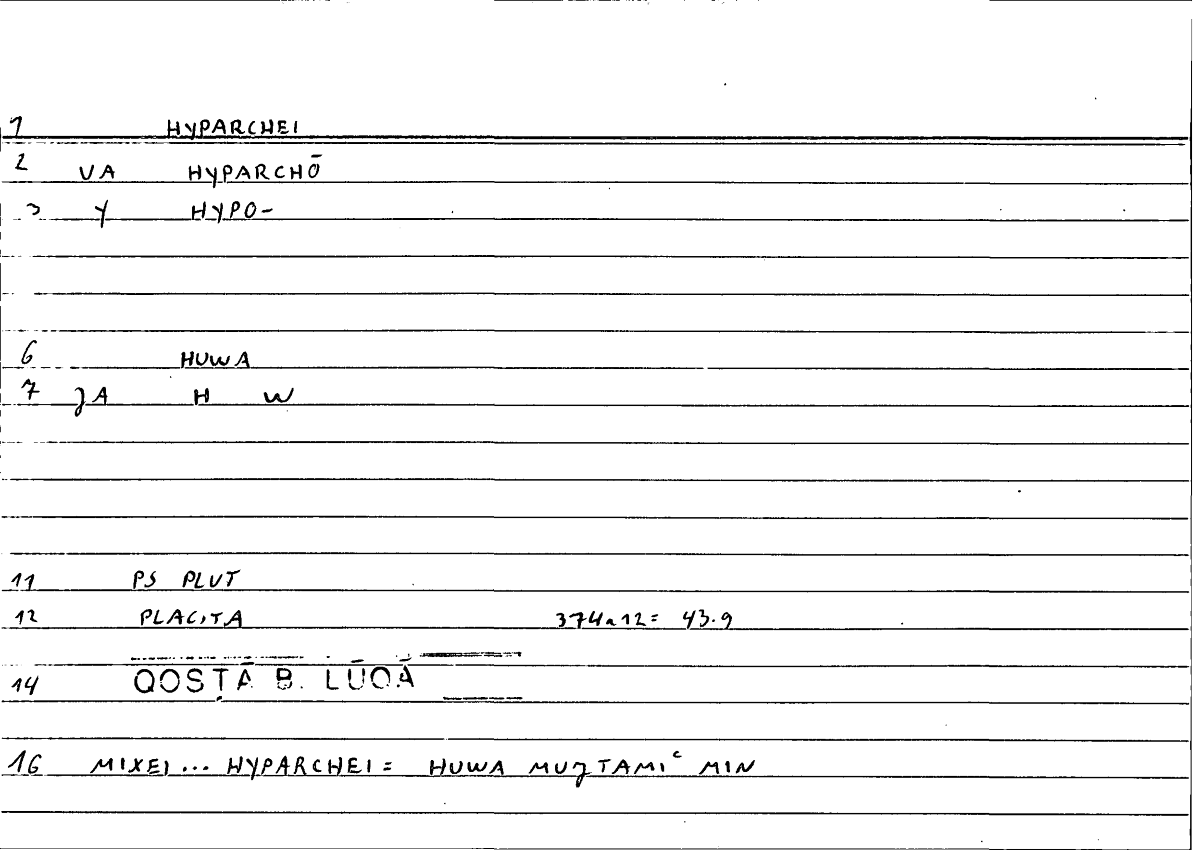 1 HYPARCHEI
2 VA HYPARCHŌ
3 Y HYPO-
6 HUWA
7 ȜA H W
11 PS PLUT
12 PLACITA 374a12= 43.9
14 QOSṬĀ B. LŪQĀ
16 MIXEI... HYPARCHEI = HUWA MUȜTAMIᶜ MIN